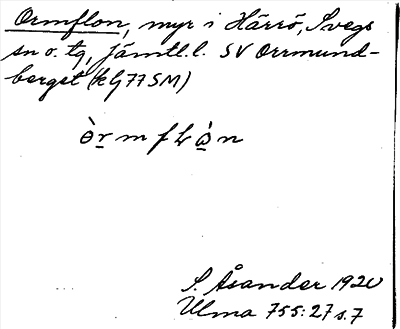 Ormflon, myr i Härrö, Svegs
sn o. tg, Jämtl. l. SV Orrmund-
berget (kbj 77 SM)
òrmflàn
S. Åsander 1920
Ulma 755:27 s. 7